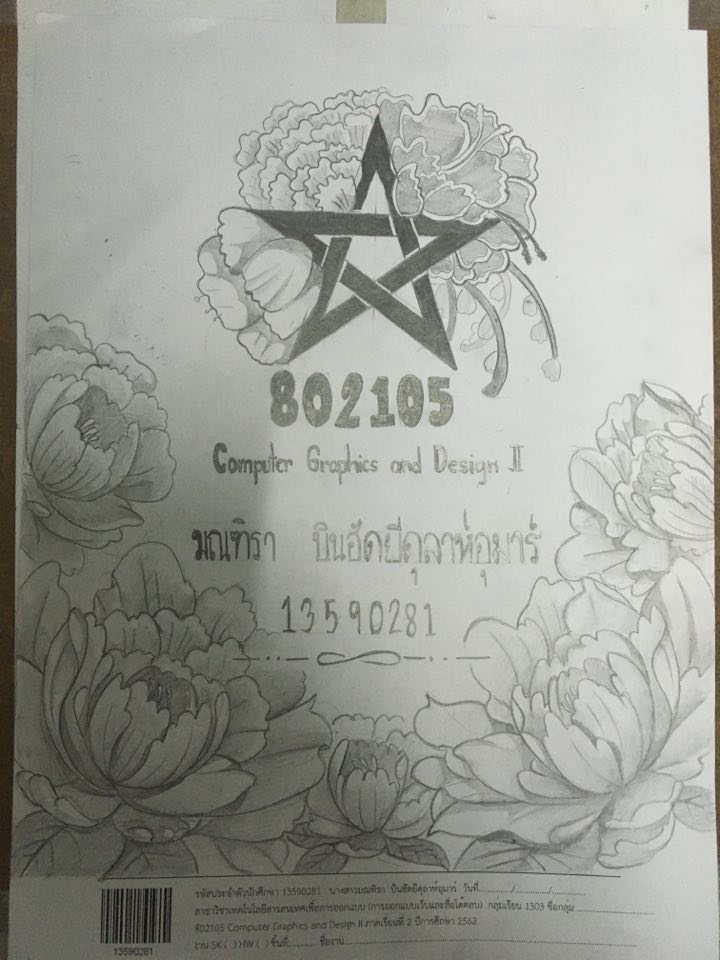 802105
Computer Graphics and Design II
มณฑิรา บินฮัดยีดุลาห์อุมาร์
13590281
13590281
รหัสประจำตัวนักศึกษา 13590281 นางสาวมณฑิรา บินฮัดยีดุลาห์อุมาร์ วันที่........./............/...............
สาขาวิชาเทคโนโลยีสารสนเทศเพื่อการออกแบบ (การออกแบบเว็บและสื่อโต้ตอบ) กลุ่มเรียน 1303 ชื่อกลุ่ม ................
802105 Computer Graphics and Design II ภาคเรียนที่ 2 ปีการศึกษา 2562
งาน SK ( ) HW ( ) ชิ้นที่.......... ชื่องาน..........................